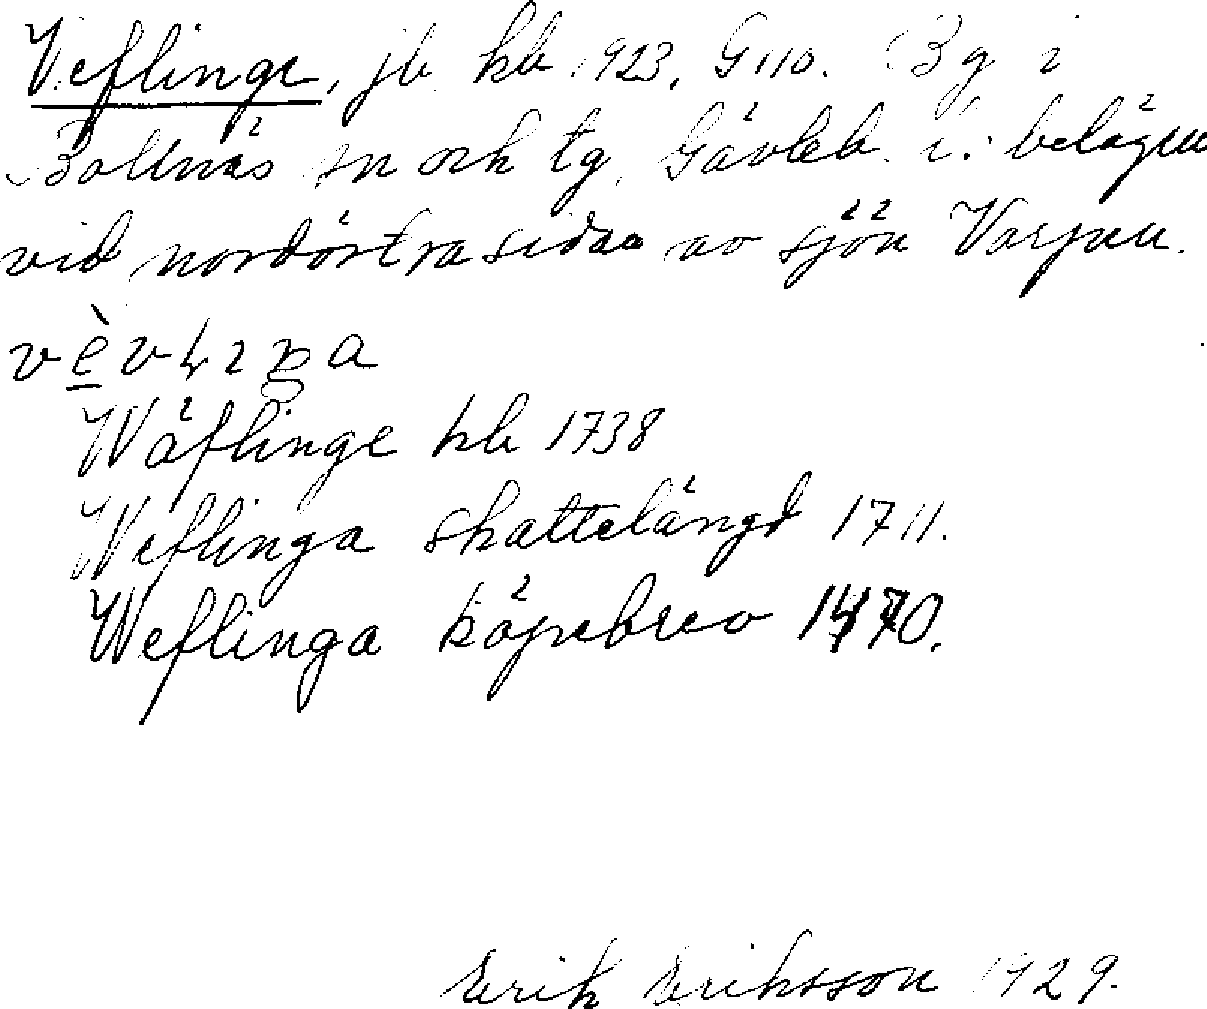 Veflinge, jb kb 1923, G 110. By i
Bollnäs sn och tg, Gävleb. l. belägen
vid nordöstra sidan av sjön Varpen.
Wäflinge hb 1738
Weflinga skattelängd 1711.
Weflinga köpebrev 1470.
Erik Eriksson 1929.